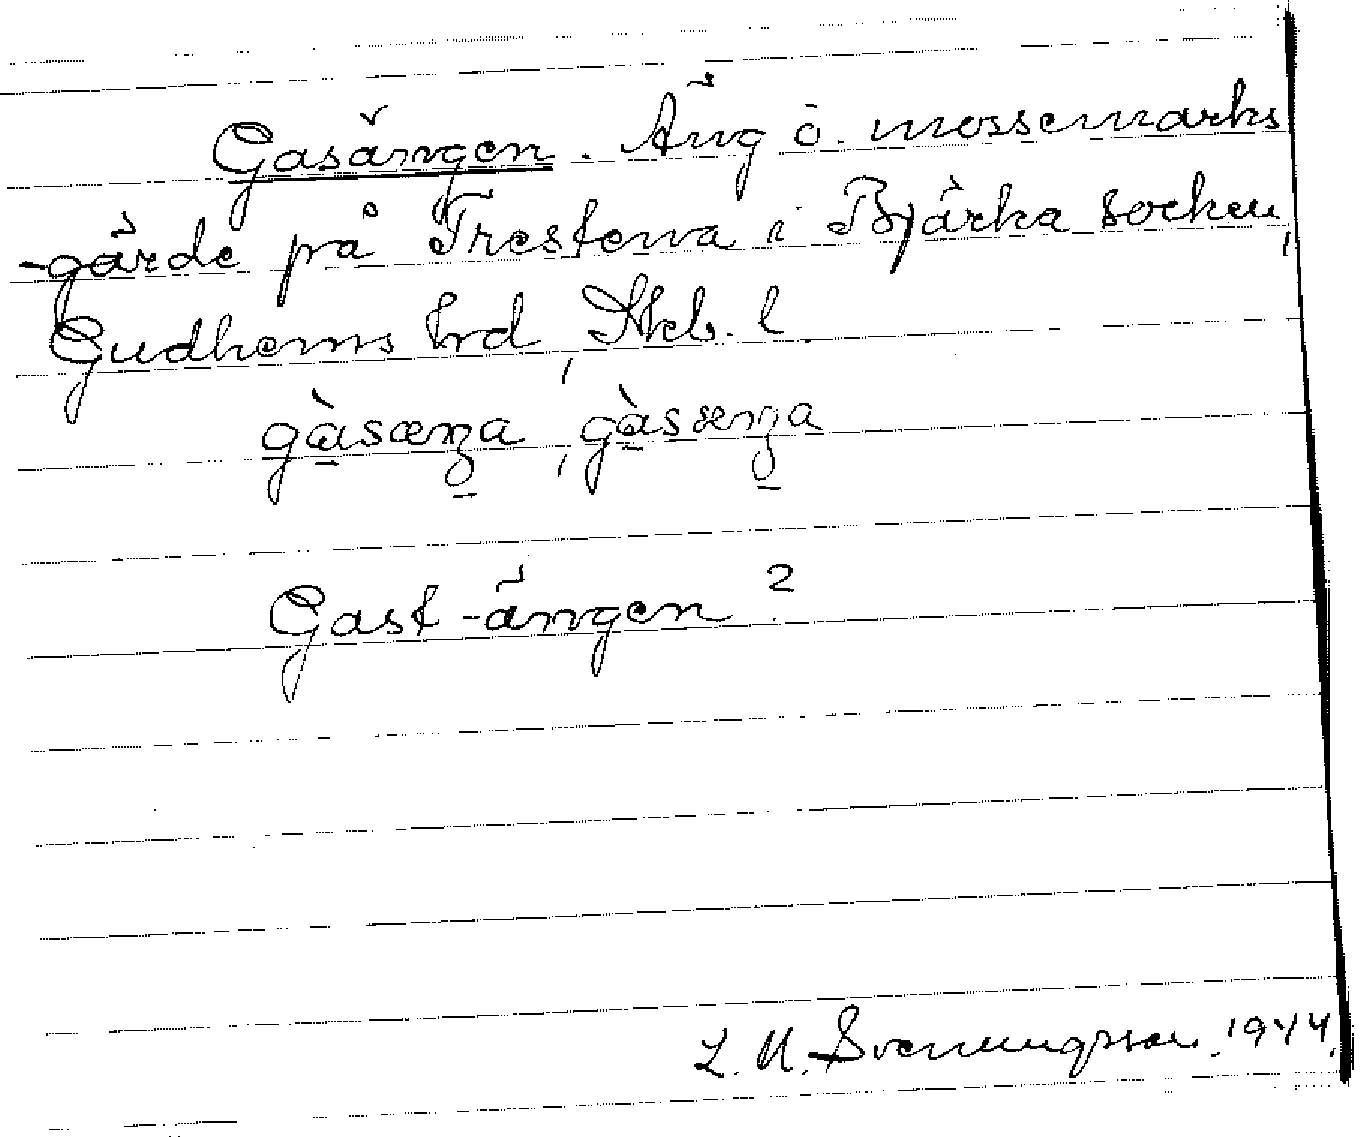 Gasängen. Äng o. mossemarks
-gärde på Trestena i Bjärka socken,
Gudhems hrd, Skb. l.
gàsæŋa, gàssæŋa
Gast-ängen?
L. M. Svenungsson. 1944.